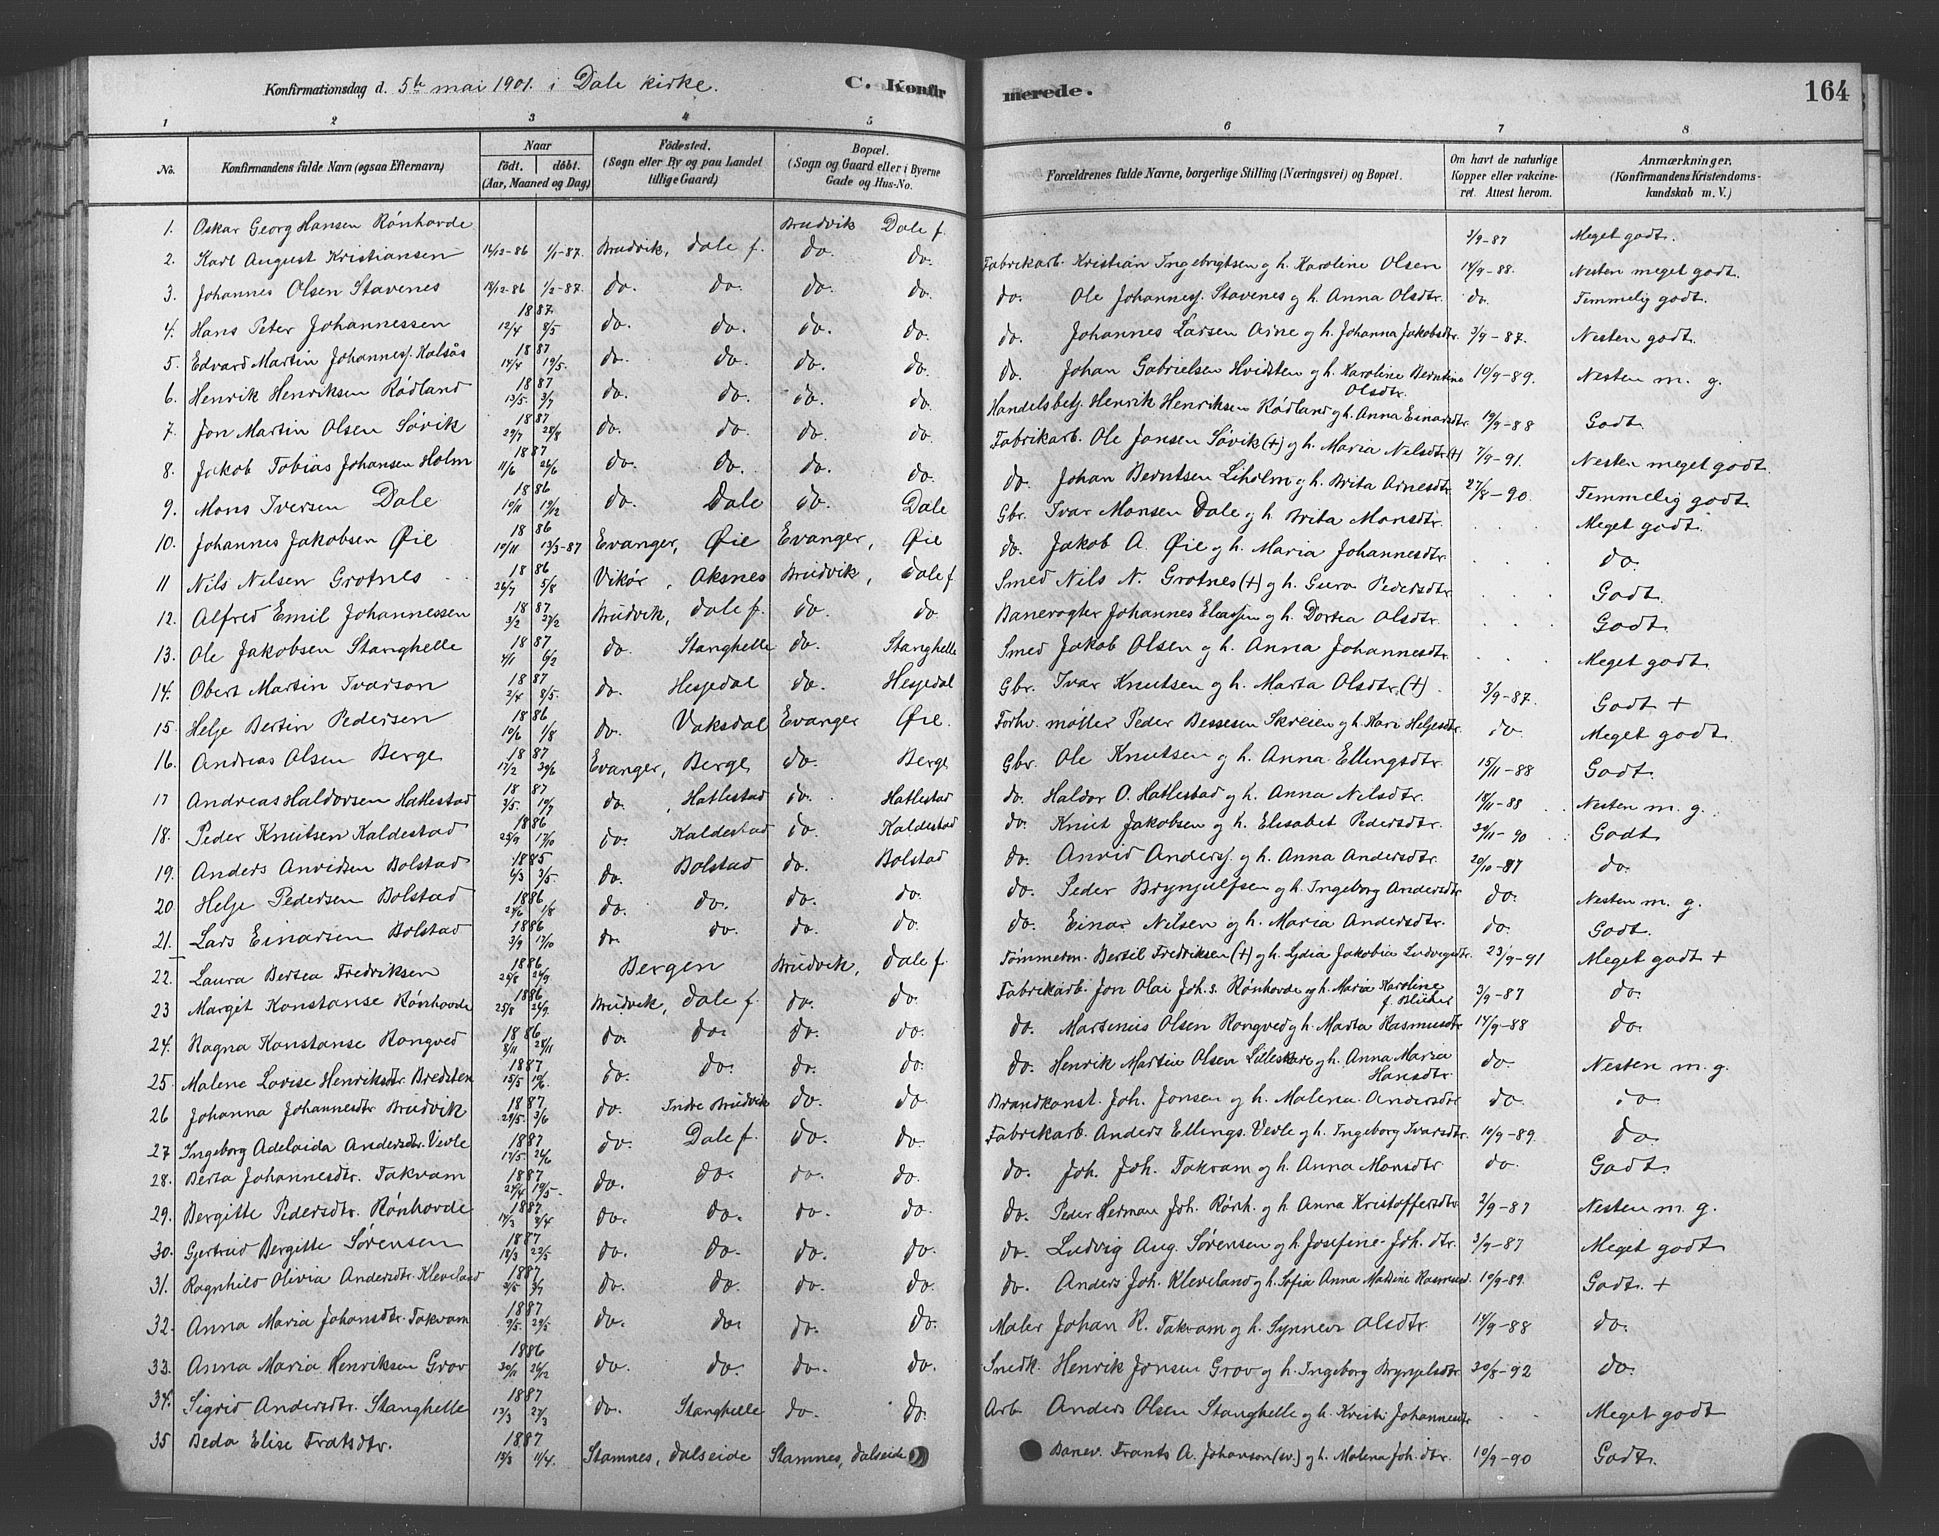 Konfirmationsdag d. 5te mai 1901. i Dale kirke. C. Konfirmerede. 164
1 2 3 4 5 6 7 8
No. Konfirmandens fulde Navn (ogsaa Efternavn) Naar födt. döbt. (Aar, Maaned og Dag) Födested. (Sogn eller By og paa Landet tillige Gaard) Bopæl. (Sogn og Gaard eller i Byerne Gade og Hus-No. Forældrenes fulde Navne, borgerlige Stilling (Næringsvei) og Bopæl. Om havt de naturlige Kopper eller vakcineret. Attest herom. Anmærkninger. (Konfirmandens Kristendomskundskab m. V.)
1. Oskar Georg Hansen Rónhovde Brudvik Dale f. 3/9-87 Meget godt.
2. Karl August Kristiansen 14/12-86 1/1-87. Brudvik, Dale f. do. do. Fabrikarb. Kristian Ingebrigtsen g h. Karoline Olsen 14/9-88. Nesten meget godt.
3. Johannes Olsen Stavenes 13/12-86 1/2-87. do. do. do. do. do. Ole Johannesj. Stavenes g h. Anna Olsdtr. do. Temmelig godt.
4. Hans Peter Johannessen 1887 12/4 8/5 do. do. do. do. do. Johannes Larsen Arne g h. Johanna Jakobsdtr. 3/9-87. Nesten godt.
5. Edvard Martin Johannesj. Kalsås 1887 14/4 19/5. do. do. do. do. do. Johan Gabrielsen Hvidsten g h. Karoline Berntine Olsdtr. 10/9-89. Nesten m. g.
6. Henrik Henriksen Rødland 1887 13/5. 3/7 do. do. do. do. Handelsbetj. Henrik Henriksen Rødland g h. Anna Einarsdtr. 19/9-88 Godt.
7. Jon Martin Olsen Søvik 1887 29/7 28/8 do. do. do. do. Fabrikarb. Ole Jansen Søvik (+) g h. Maria Nilsdtr. (+) 7/9-91. Nesten meget godt.
8. Jakob Tobias Johansen Holm 1887 11/6 26/6 do. do. do. do. do. Johan Berntsen Liholm g h. Brita Arnesdtr. 27/8-90. Temmelig godt.
9. Mons Iversen Dale 1886 19/11 19/12 do. Dale do. Dale Gbr. Ivar Monsen Dale g h. Brita Monsdtr. . . . Meget godt.
10. Johannes Jakobsen Øie 1886 19/11 13/3-87 Evanger, Øie Evanger, Øie do. Jakob A. Øie g h. Maria Johannesdtr. . . . do.
11 Nils Nilsen Grotnes 1886 26/7 5/8 Vikør, Aksnes Brudvik, Dale f Smed Nils N. Grotnes (+) g h. Guro Pedersdtr. . . . Godt.
12. Alfred Emil Johannessen 1887 3/2 27/2 Brudvik, Dale f. do. do. Banevogter Johannes Eliassen g h. Dortea Olsdtr. . . . Godt.
13. Ole Jakobsen Stanghelle 1887 4/1 6/2 do. Stanghelle do. Stanghelle Smed Jakob Olsen g h. Anna Johannesdtr. . . Meget godt.
14. Obert Martin Ivarson 1887 2/4 8/5. do. Hesjedal do. Hesjedal Gbr. Ivar Knutsen g h. Marta Olsdtr. (+) . 3/9-87. Godt +
15. Helje Bertin Pedersen 1886 19/6 1/8 do. Vaksdal Evanger Øie. Forhv. møller Peder Bessesen Skreien g h. Kari Heljesdtr. do. Meget godt.
16. Andreas Olsen Berge 1887 17/2 30/6 Evanger, Berge do. Berge Gbr. Ole Knutsen g h. Anna Ellingsdtr. 15/11-88 Godt.
17 Andreas Haldorsen Hatlestad 1887 3/5. 19/7 do. Hatlestad do. Hatlestad do. Haldor O. Hatlestad g h. Anna Nilsdtr. 18/11-88 Nesten m. g.
18. Peder Knutsen Kaldestad 1886 25/9 17/10 do. Kaldestad do. Kaldestad do. Knut Jakobsen g h. Elisabet Pedersdtr. 24/11-90 Godt
19. Anders Anvidsen Bolstad 1885 6/3 3/5. do. Bolstad do. Bolstad do. Anvid Andersj. g h. Anna Andersdtr. 20/10-87 do.
20 Helje Pedersen Bolstad 1886 24/6 1/8 do. do. do. do. do. Peder Brynjulfsen g h. Ingeborg Andersdtr. do. Nesten m. g.
21. Lars Einarsen Bolstad 1886 3/9 17/10 do. do. do. do. do. Einar Nilsen g h. Maria Andersdtr. do. Godt.
22. Laura Bertea Fredriksen 1886 25/8 26/9 Bergen Brudvik, Dale f. Tömmerm. Bertil Fredriksen (+) g h. Lydia Jakobia Ludvigsdtr. 23/9-91 Meget godt +
23 Margit Konstanse Rønhovde 1886 25/8 26/9 Brudvik, Dale f. do. do. Fabrikarb. Jon Olai Joh.s. Rønhovde g h. Maria Karoline f. Blücher 3/9-87 do.
24. Ragna Konstanse Rongved 1886 8/11 28/11 do. do. do. do. do. Martinius Olsen Rongved g h. Marta Rasmusdtr. 14/9-88 do.
25. Malene Lovise Henriksdtr. Bredsten 1887 15/5 19/6. do. do. do. do. do. Henrik Martin Olsen Lilleskare g h. Anna Maria Hansdtr. do. Nesten m. g.
26 Johanna Johannesdtr Brudvik 1887 29/5. 3/6 do. Indre Brudvik do. do. Brandkonst. Joh. Jonsen g h. Malena Andersdtr do. do
27 Ingeborg Adelaida Andersdtr. Vevle 1887 17/5. 26/6 do. Dale f. do. do. Fabrikarb. Anders Ellings. Vevle g h. Ingeborg Ivarsdtr. 10/9-89. do.
28. Berta Johannesdtr. Takvam 1887 24/4 19/5. do. do. do. do. do. Joh. Joh. Takvam g h. Anna Monsdtr. do. Godt.
29. Bergitte Pedersdtr. Rønhovde 1887 14/3 9/4 do. do. do. do. do. Peder Herman Joh. Rönh. g h. Anna Kristoffersdtr. 2/9-87 Nesten m. g.
30. Gjertrud Bergitte Sørensen 1887 18/3 22/5 do. do. do. do. do. Ludvig Aug. Sørensen g h. Josefine Joh. dtr. 3/9-87 Meget godt
31. Ragnhild Olivia Andersdtr. Kleveland 1887 2/5. 3/7 do. do. do. do. do. Anders Joh. Kleveland g h. Sofia Anna Matdine Rasmusd. 19/9-89. Godt. +
32. Anna Maria Johansdtr. Takvam 1887 9/5. 29/5 do. do. do. do. Maler Johan R. Takvam g h. Synneve Olsdtr. 14/9-88 do.
33. Anna Maria Henriksen Grov 1886 30/11 26/12 do. do. do. do. Snedk. Henrik Jonsen Grov g h. Ingeborg Brynjelsdtr. 20/8-92 do.
34. Sigrid Andersdtr. Stanghelle 1887 13/3 27/3 do. Stanghelle do. do. Arb. Anders Olsen Stanghelle g h. Kristi Johannesdtr . . Meget godt
35 Beda Elise Fratsdtr. 1887 19/3 11/4. Stamnes, Dalseide Stamnes, Dalseide Banev. Frants A. Johanson (sv.) g h. Malena Joh. dtr. 10/9-90 Godt.